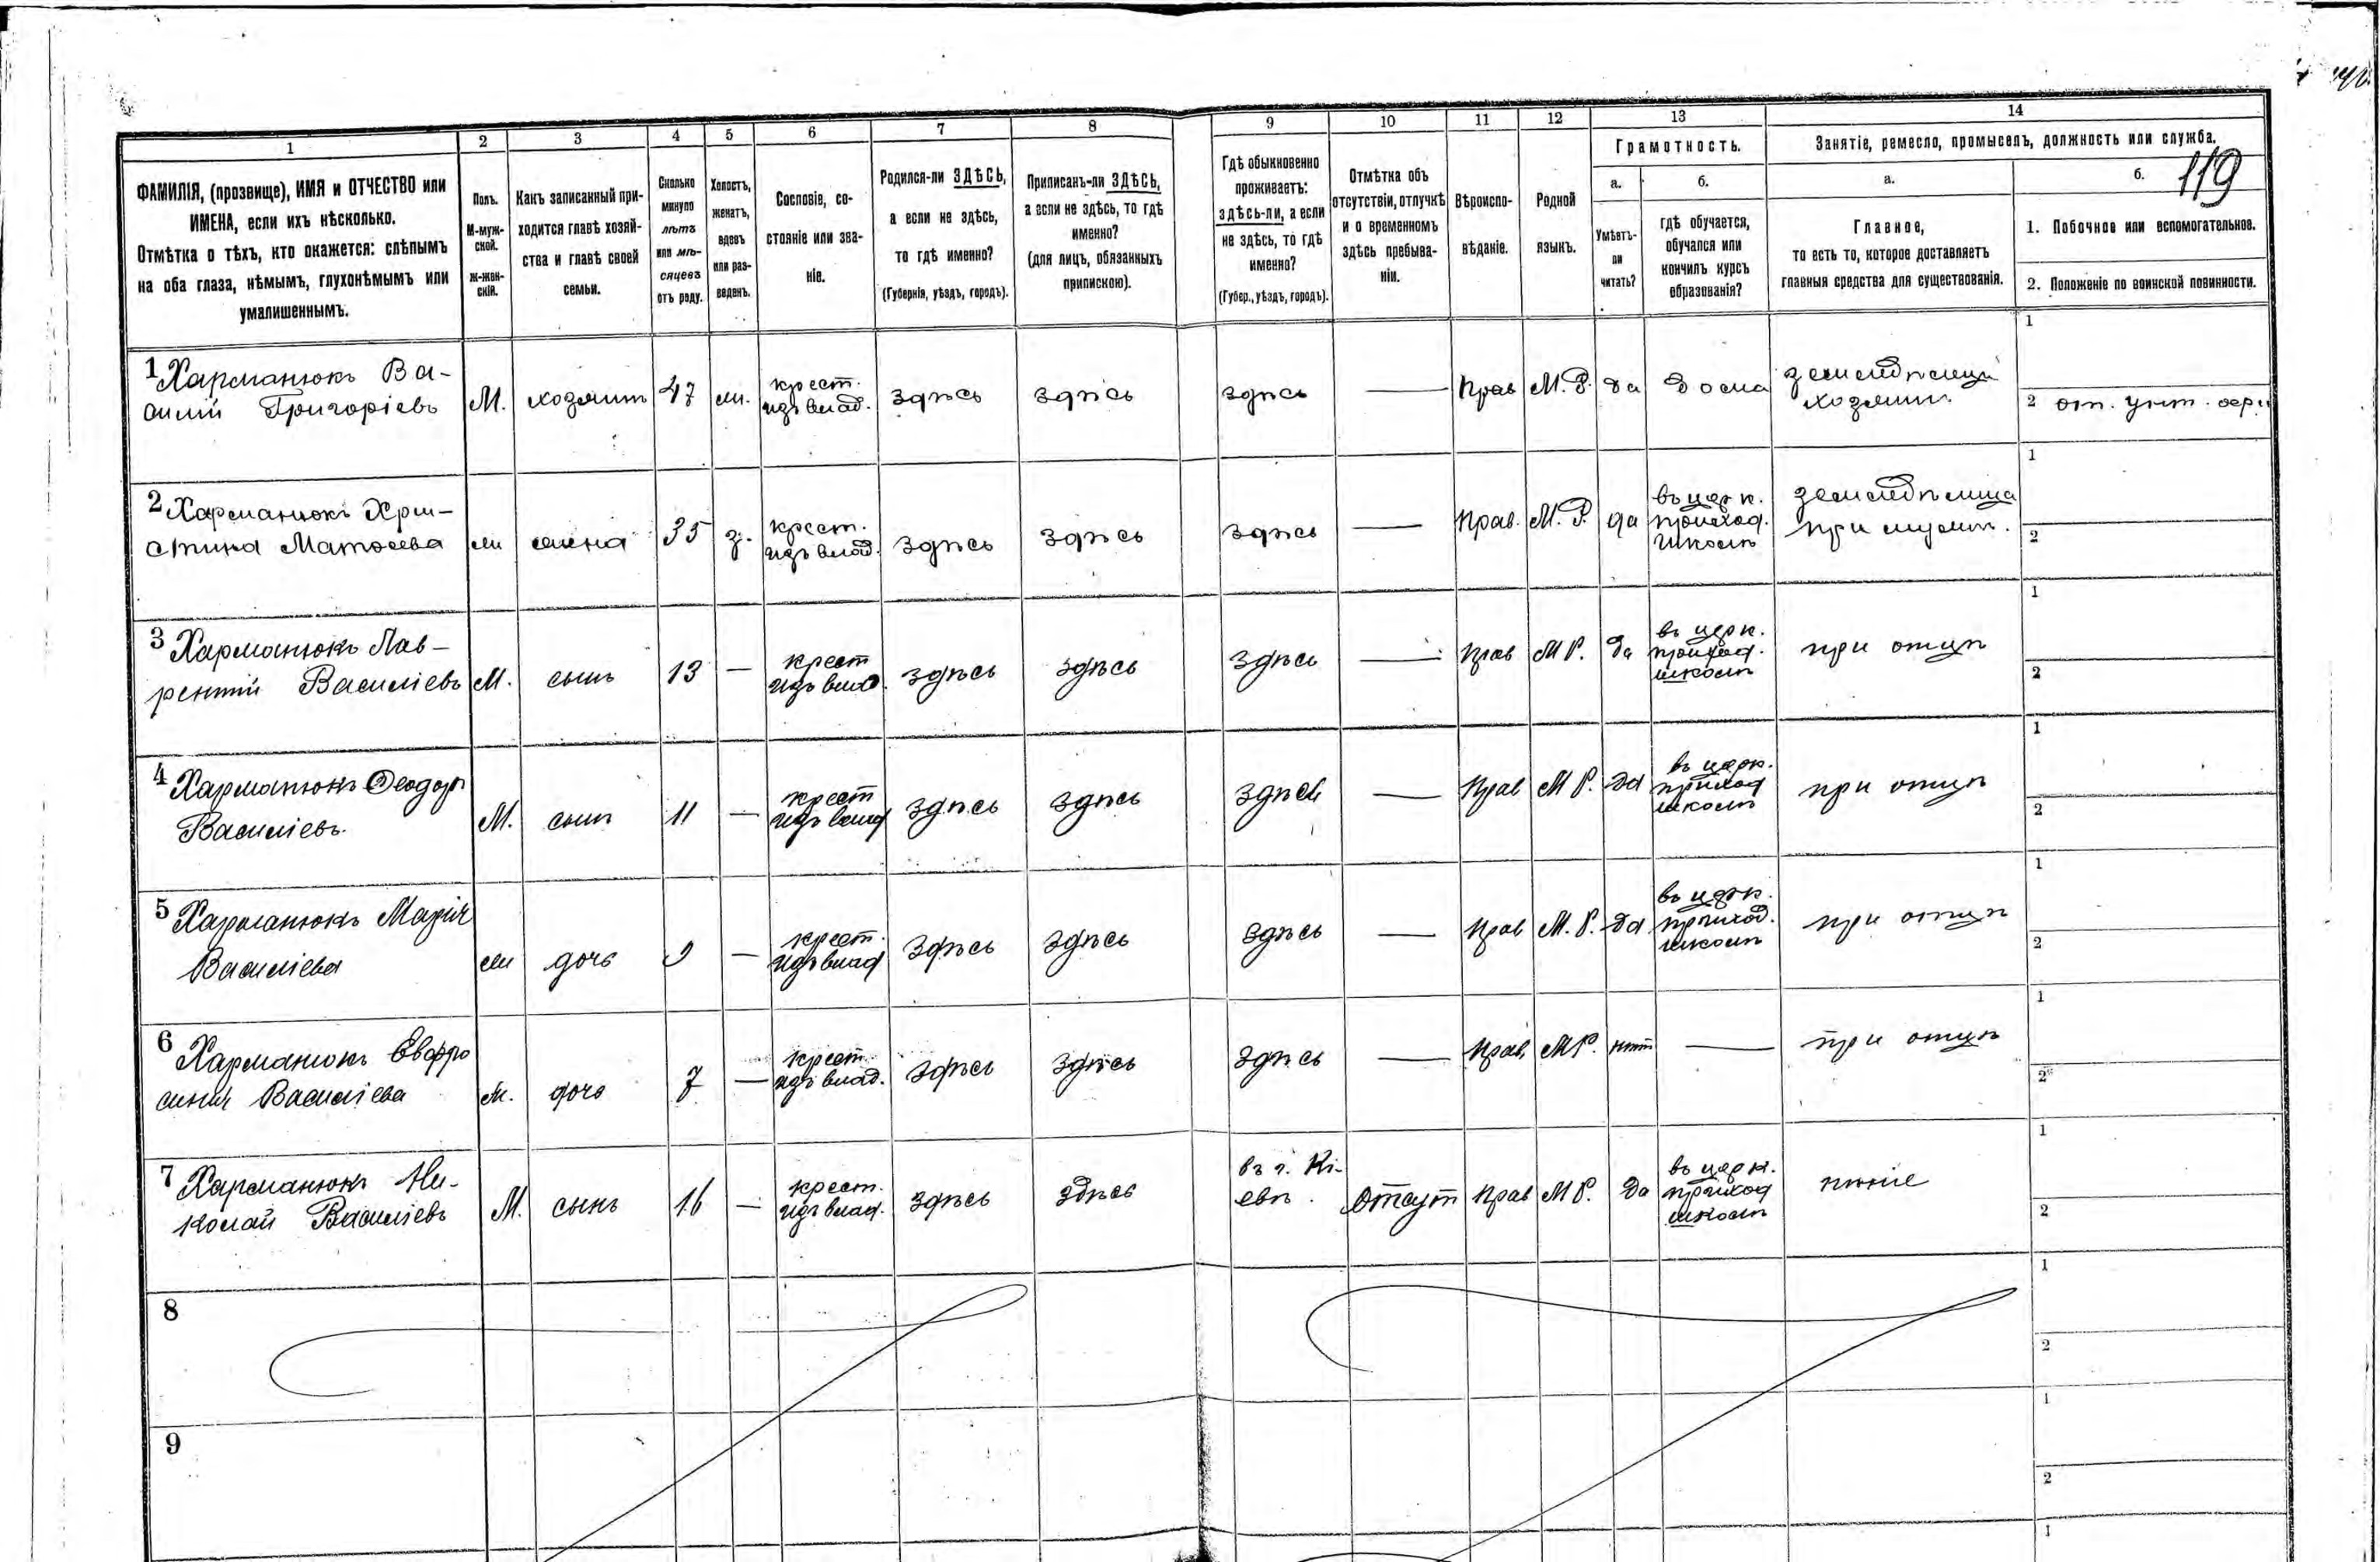 119
1
2
3
4
5
6
7
8
9
10
11
12
13
14
ФАМИЛІЯ, (прозвище), ИМЯ и ОТЧЕСТВО или
ИМЕНА, если ихъ нѣсколько.
Отмѣтка о тѣхъ, кто окажется: слѣпымъ
на оба глаза, нѣмымъ, глухонѣмымъ или
умалишеннымъ.
Полъ.
М-муж-
ской.
Ж-жен-
скій.
Какъ записанный при-
ходится главѣ хозяй-
ства и главѣ своей
семьи.
Сколько
минуло
лѣтъ
или мѣ-
сяцевъ
отъ роду.
Холостъ,
женатъ,
вдовъ
или раз-
веденъ.
Сословіе, со-
стояніе или зва-
ніе.
Родился-ли ЗДѢСЬ,
а если не здѣсь,
то гдѣ именно?
(Губернія, уѣздъ, городъ).
Приписанъ-ли ЗДѢСЬ,
а если не здѣсь, то гдѣ
именно?
(для лицъ, обязанныхъ
припискою).
Гдѣ обыкновенно
проживаетъ:
здѣсь-ли, а если
не здѣсь, то гдѣ
именно?
(Губер., уѣздъ, городъ).
Отмѣтка объ
отсутствіи, отлучкѣ
и о временномъ
здѣсь пребыва-
ніи.
Вѣроиспо-
вѣданіе.
Родной
языкъ.
Грамотность.
а.
Умѣетъ-
ли
читать?
б.
гдѣ обучается,
обучался или
кончилъ курсъ
образованія?
Занятіе, ремесло, промыселъ, должность или служба.
а.
Главное,
то есть то, которое доставляетъ
главныя средства для существованія.
б.
1. Побочное или вспомогательное.
2. Положеніе по воинской повинности.
1 Харманюкъ Ва-
силій Григоріевъ
М.
хозяинъ
47
ж.
крест.
изъ влад.
здѣсь
здѣсь
здѣсь
—
Прав
М. Р.
да
дома
земледѣлецъ
хозяинъ
1
2 от. унт.
2 Харманюкъ Хри-
стина Матѳеева
ж
жена
35
з.
крест.
изъ влад.
здѣсь
здѣсь
здѣсь
—
Прав.
М. Р.
да
въ церк.
приход.
школѣ
земледѣлица
при мужѣ.
1
2
3 Харманюкъ Лав-
рентій Василіевъ
М.
сынъ
13
—
крест
изъ влад.
здѣсь
здѣсь
здѣсь
—
Прав
М Р.
да
въ церк.
приход.
школѣ
при отцѣ
1
2
4 Харманюкъ Ѳеодоръ
Василіевъ.
М.
сынъ
11
—
крест
изъ влад
здѣсь
здѣсь
здѣсь
—
Прав
М Р.
да
въ церк.
приход
школѣ
при отцѣ
1
2
5 Харманюкъ Марія
Василіева
ж
дочь
9
—
крест.
изъ влад
здѣсь
здѣсь
здѣсь
—
Прав
М. Р.
да
въ церк.
приход.
школѣ
при отцѣ
1
2
6 Харманюкъ Евфро
синія Василіева
ж.
дочь
7
—
крест.
изъ влад.
здѣсь
здѣсь
здѣсь
—
Прав.
М Р.
нѣт
—
при отцѣ
1
2
7 Харманюкъ Ни-
колай Василіевъ
М.
сынъ
16
—
крест.
изъ влад.
здѣсь
здѣсь
въ г. Кі-
евѣ.
отсут
Прав
М Р.
да
въ церк.
приход
школѣ
пѣніе
1
2
8
1
2
9
1
2
1